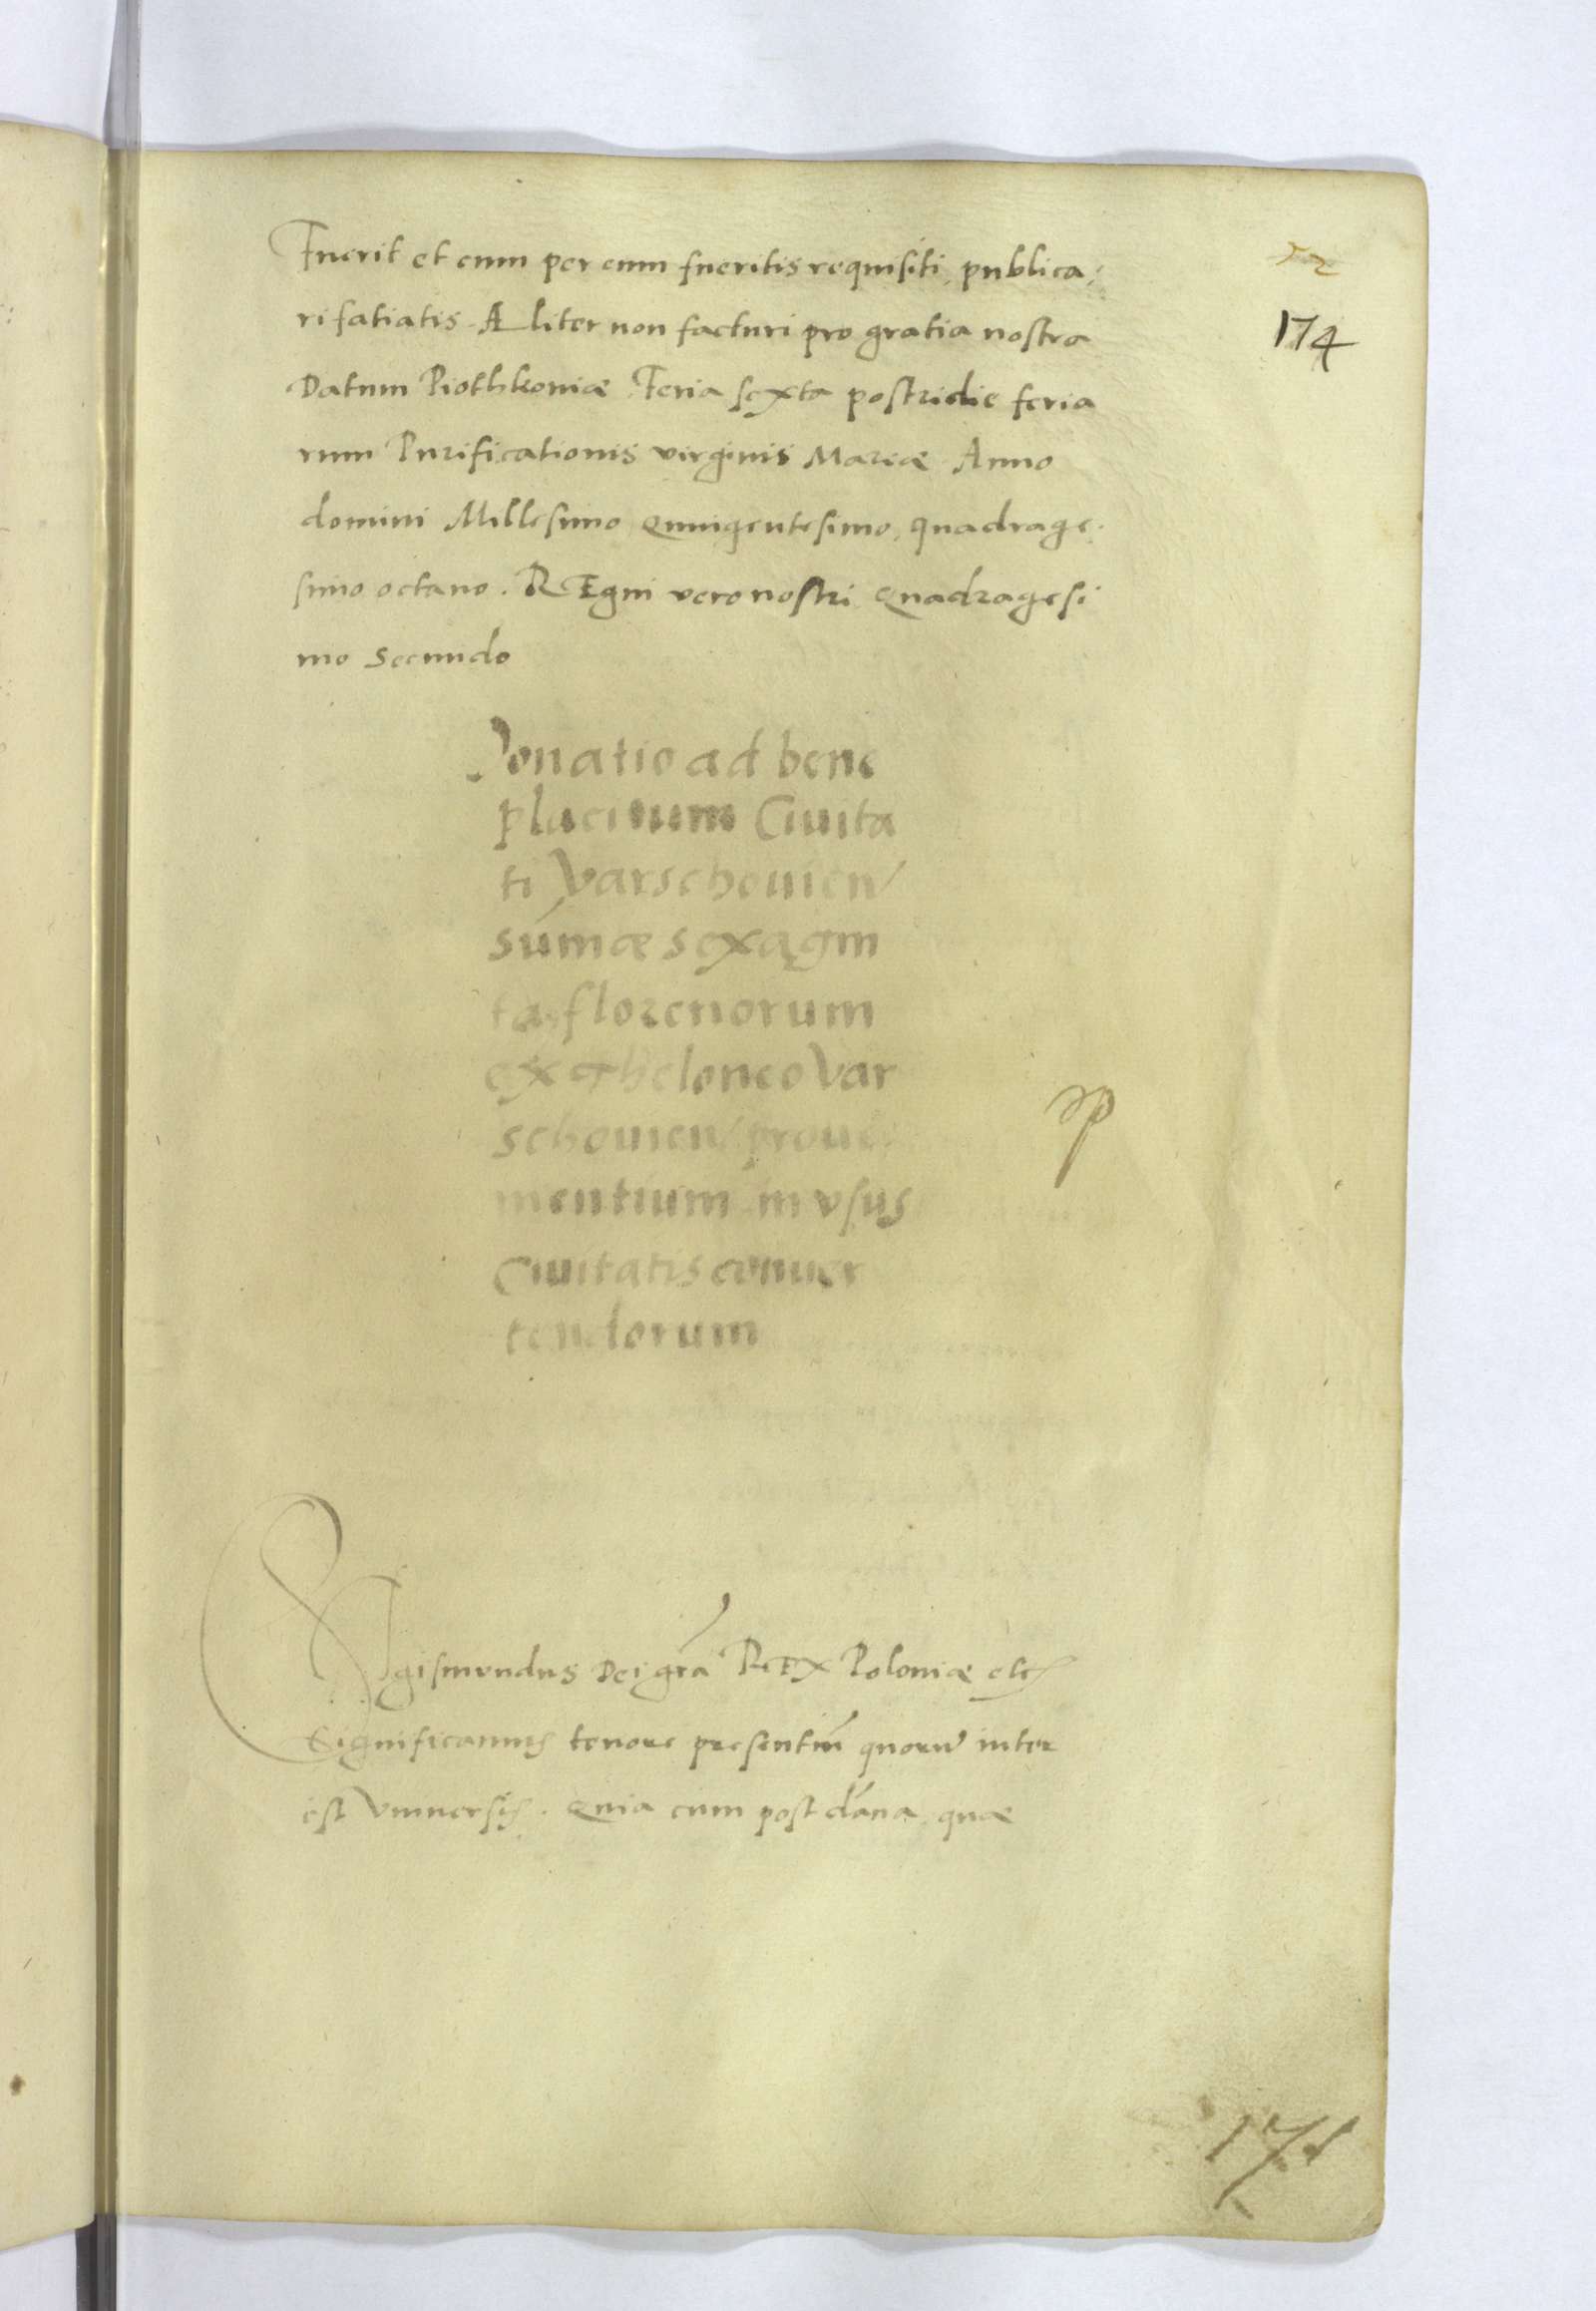 Fuerit et cum per eum fueritis requisiti, publica,
ri fatiatis. Aliter non facturi pro gratia nostra
Datum Piothkoviæ Feria sexta postridie feria
rum Purificationis virginis Mariæ Anno
domini Millesimo Quingentesimo, quadrage,
simo octavo. REgni vero nostri Quadragesi
mo Secundo
52
174
Donatio ad bene
placitum Civita
ti Varschovien
sum̃æ sexagin
ta florenorum
ex theloneo Var
schovien prove
nientium in vsus
Civitatis conver
tendorum
SIgismundus Dei grã REX Poloniæ etc
Significamus tenore presentiũ quorũ inter
est Vniversis. Quia cum post dãna, quæ
171